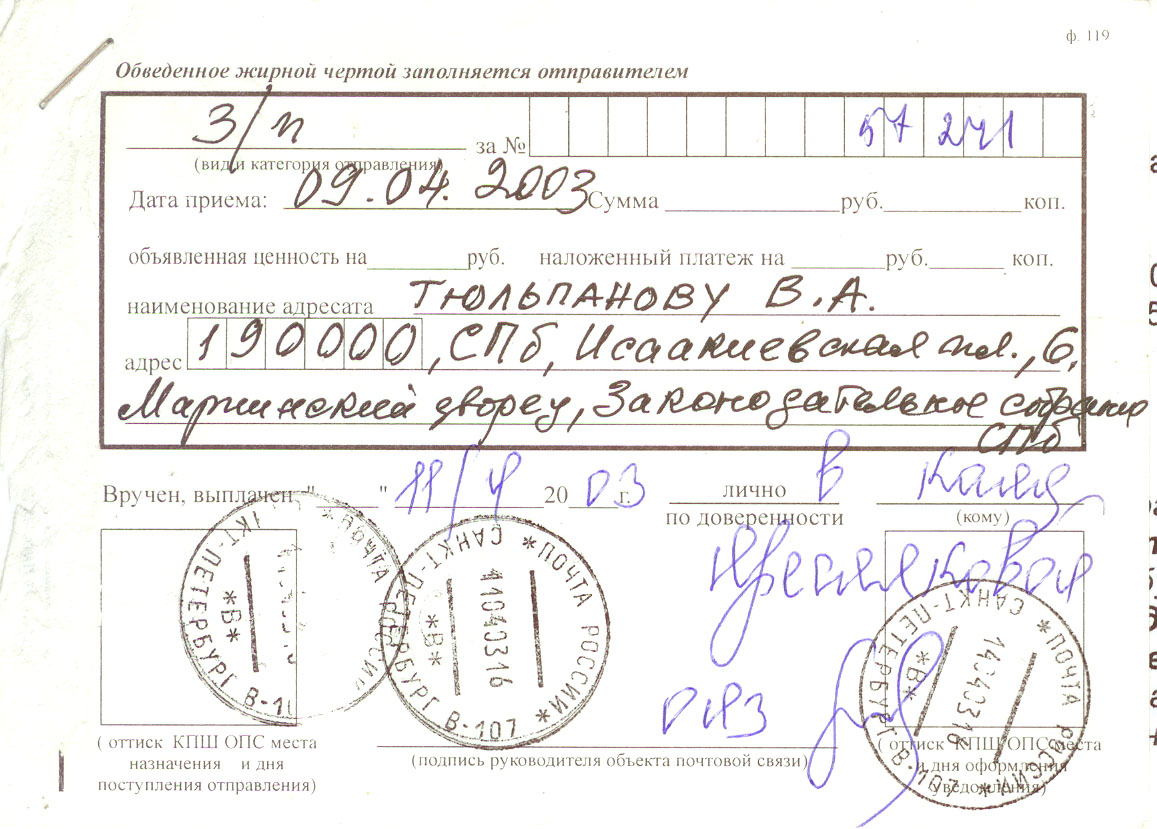 ф. 119
Обведенное жирной чертой заполняется отправителем
З/п за № 57 241
(вид и категория отправления)
Дата приема: 09.04.2003 Сумма руб. коп.
объявленная ценность на руб. наложенный платеж на руб. коп.
наименование адресата ТЮЛЬПАНОВУ В.А.
адрес 190000, СПб, Исаакиевская пл., 6,
Мариинский дворец, Законодательное собрание
СПб
Вручен, выплачен, " " 11/4 20 03 г. лично в
по доверенности (кому)
САНКТ-ПЕТЕРБУРГ В-10 *В* ПОЧТА РОССИИ
ПОЧТА РОССИИ * САНКТ-ПЕТЕРБУРГ В-107 * *В* 11040316
ПОЧТА РОССИИ * САНКТ-ПЕТЕРБУРГ В-107 * *В* 14040316
( оттиск КПШ ОПС места
назначения и дня
поступления отправления)
(подпись руководителя объекта почтовой связи)
( оттиск КПШ ОПС места
и дня оформления
уведомления)